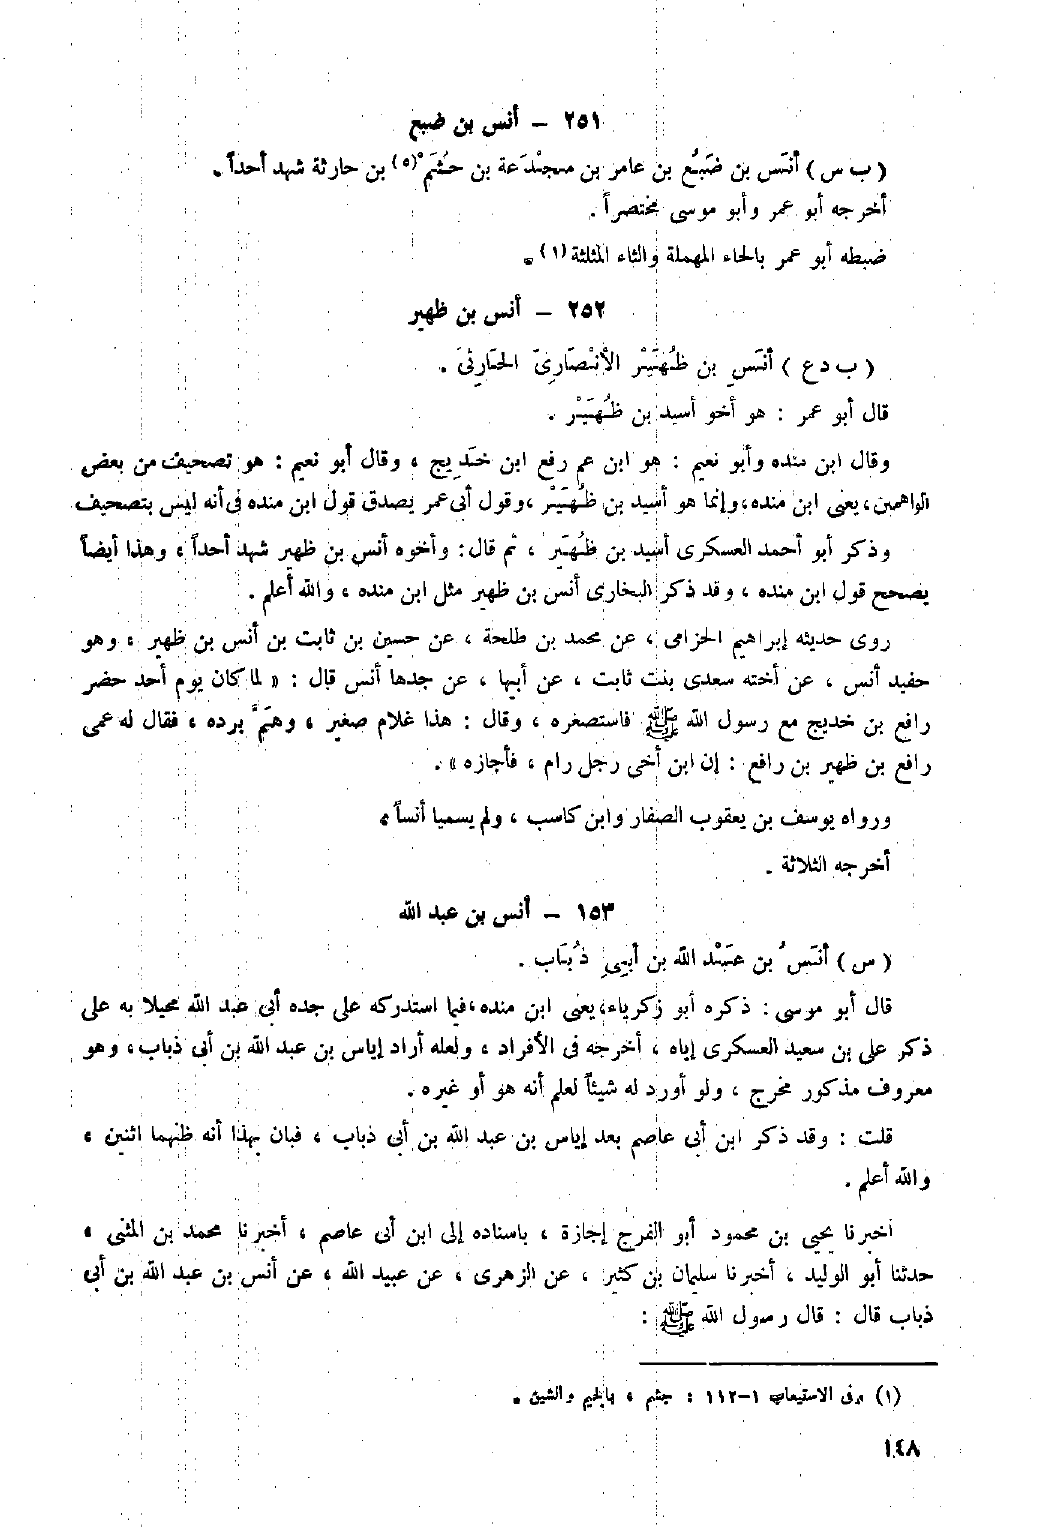 ٢٥١ – أنس بن ضبع
( ب س ) أنَس بن ضَبُع بن عامر بن مجْدَعة بن حُثَم(٥) بن حارثة شهد أحداً .
أخرجه أبو عمر وأبو موسى مختصراً .
ضبطه أبو عمر بالحاء المهملة والثاء المثلثة(١) .
٢٥٢ – أنس بن ظهير
( ب د ع ) أنَس بن ظُهَيْر الأنْصَارِىّ الحَارِثىّ .
قال أبو عمر : هو أخو أسيد بن ظُهَيْر .
وقال ابن منده وأبو نعيم : هو ابن عم رفع ابن خَدِيج ، وقال أبو نعيم : هو تصحيف من بعض
الواهمين، يعنى ابن منده، وإنما هو أسيد بن ظُهَيْر ، وقول أبى عمر يصدق قول ابن منده فى أنه ليس بتصحيف
وذكر أبو أحمد العسكرى أسيد بن ظُهَير ، ثم قال : وأخوه أنس بن ظهير شهد أحداً ، وهذا أيضاً
يصحح قول ابن منده ، وقد ذكر البخارى أنس بن ظهير مثل ابن منده ، والله أعلم .
روى حديثه إبراهيم الحزامى ، عن محمد بن طلحة ، عن حسين بن ثابت بن أنس بن ظهير ، وهو
حفيد أنس ، عن أخته سعدى بنت ثابت ، عن أبيها ، عن جدها أنس قال : « لما كان يوم أحد حضر
رافع بن خديج مع رسول الله ﷺ فاستصغره ، وقال : هذا غلام صغير ، وهَمَّ برده ، فقال له عمى
رافع بن ظهير بن رافع : إن ابن أخى رجل رام ، فأجازه » .
ورواه يوسف بن يعقوب الصفار وابن كاسب ، ولم يسميا أنساً ،
أخرجه الثلاثة .
١٥٣ – أنس بن عبد الله
( س ) أنَسُ بن عبْد الله بن أبِى ذُبَاب .
قال أبو موسى : ذكره أبو زكرياء، يعنى ابن منده، فيما استدركه على جده أبى عبد الله محيلا به على
ذكر على بن سعيد العسكرى إياه ، أخرجه فى الأفراد ، ولعله أراد إياس بن عبد الله بن أبى ذباب ، وهو
معروف مذكور مخرج ، ولو أورد له شيئاً لعلم أنه هو أو غيره .
قلت : وقد ذكر ابن أبى عاصم بعد إياس بن عبد الله بن أبى ذباب ، فبان بهذا أنه ظنهما اثنين ،
والله أعلم .
أخبرنا يحيى بن محمود أبو الفرج إجازة ، باسناده إلى ابن أبى عاصم ، أخبرنا محمد بن المثنى ،
حدثنا أبو الوليد ، أخبرنا سليمان بن كثير ، عن الزهرى ، عن عبيد الله ، عن أنس بن عبد الله بن أبى
ذباب قال : قال رسول الله ﷺ :
(١) وفى الاستيعاب ١-١١٢ : جشم ، بالجيم والشين .
١٤٨